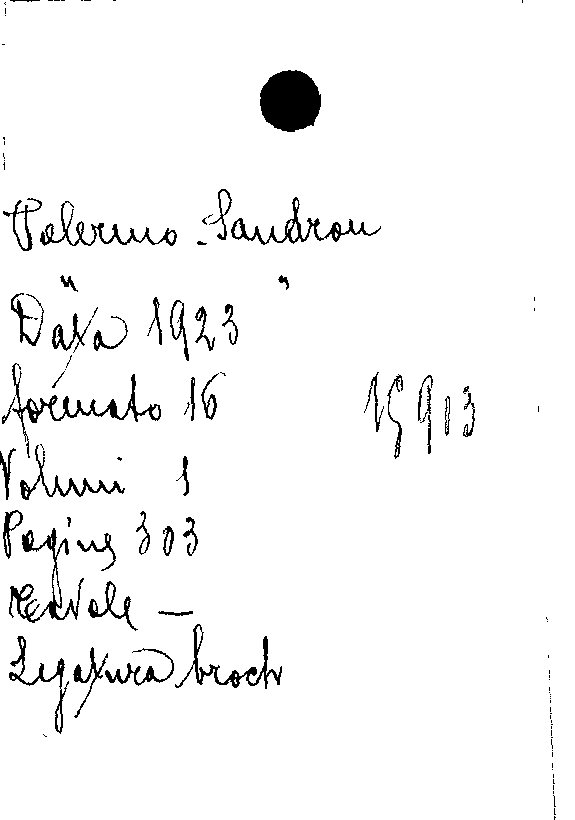 Palermo - Sandron
" "
Data 1923
formato 16
15903
Volumi 1
Pagine 303
Tavole —
Legatura broch